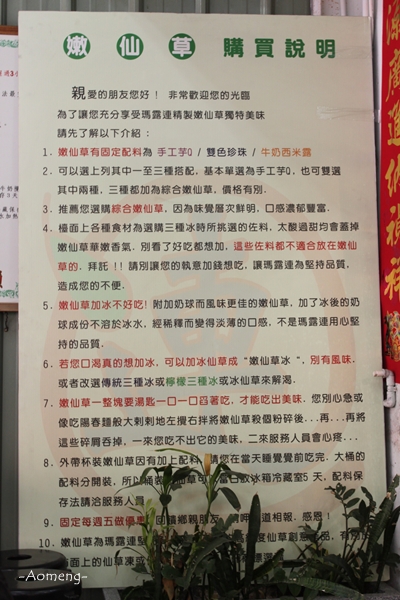 嫩仙草 購買說明
親愛的朋友您好！ 非常歡迎您的光臨
為了讓您充分享受瑪露連精製嫩仙草獨特美味
請先了解以下介紹：
1. 嫩仙草有固定配料為 手工芋Q / 雙色珍珠 / 牛奶西米露
2. 可以選上列其中一至三種搭配，基本單選為手工芋Q，也可雙選
其中兩種，三種都加為綜合嫩仙草，價格有別．
3. 推薦您選購綜合嫩仙草，因為味覺層次鮮明，口感濃郁豐富．
4. 檯面上各種食材為選購三種冰時所挑選的佐料，太酸過甜均會蓋掉
嫩仙草華嫩香氣．別看了好吃都想加，這些佐料都不適合放在嫩仙
草的．拜託 !! 請別讓您的執意加錢想吃，讓瑪露連為堅持品質，
造成您的不便．
5. 嫩仙草加冰不好吃! 附加奶球而風味更佳的嫩仙草，加了冰後的奶
球成份不溶於冰水，經稀釋而變得淡薄的口感，不是瑪露連用心堅
持的品質．
6. 若您口渴真的想加冰，可以加冰仙草成 "嫩仙草冰"，別有風味．
或者改選傳統三種冰或檸檬三種冰或冰仙草來解渴．
7. 嫩仙草一整塊要湯匙一口一口舀著吃，才能吃出美味．您別心急或
像吃陽春麵般大剌剌地左攪右拌將嫩仙草殺個粉碎後...再...再將
這些碎屑吞掉，一來您吃不出它的美味，二來服務人員會心疼...
8. 外帶杯裝嫩仙草因有加上配料，請您在當天睡覺前吃完．大桶的
配料分開裝，所以桶裝嫩仙草可 當日放冰箱冷藏室5 天，配料保
存法請洽服務人員
9. 固定每週五做優惠 回饋鄉親朋友 請呼 道相報．感恩！
10. 嫩仙草為瑪露連堅 度仙草創意 品，有別
面上的仙草凍或
-Aomeng-